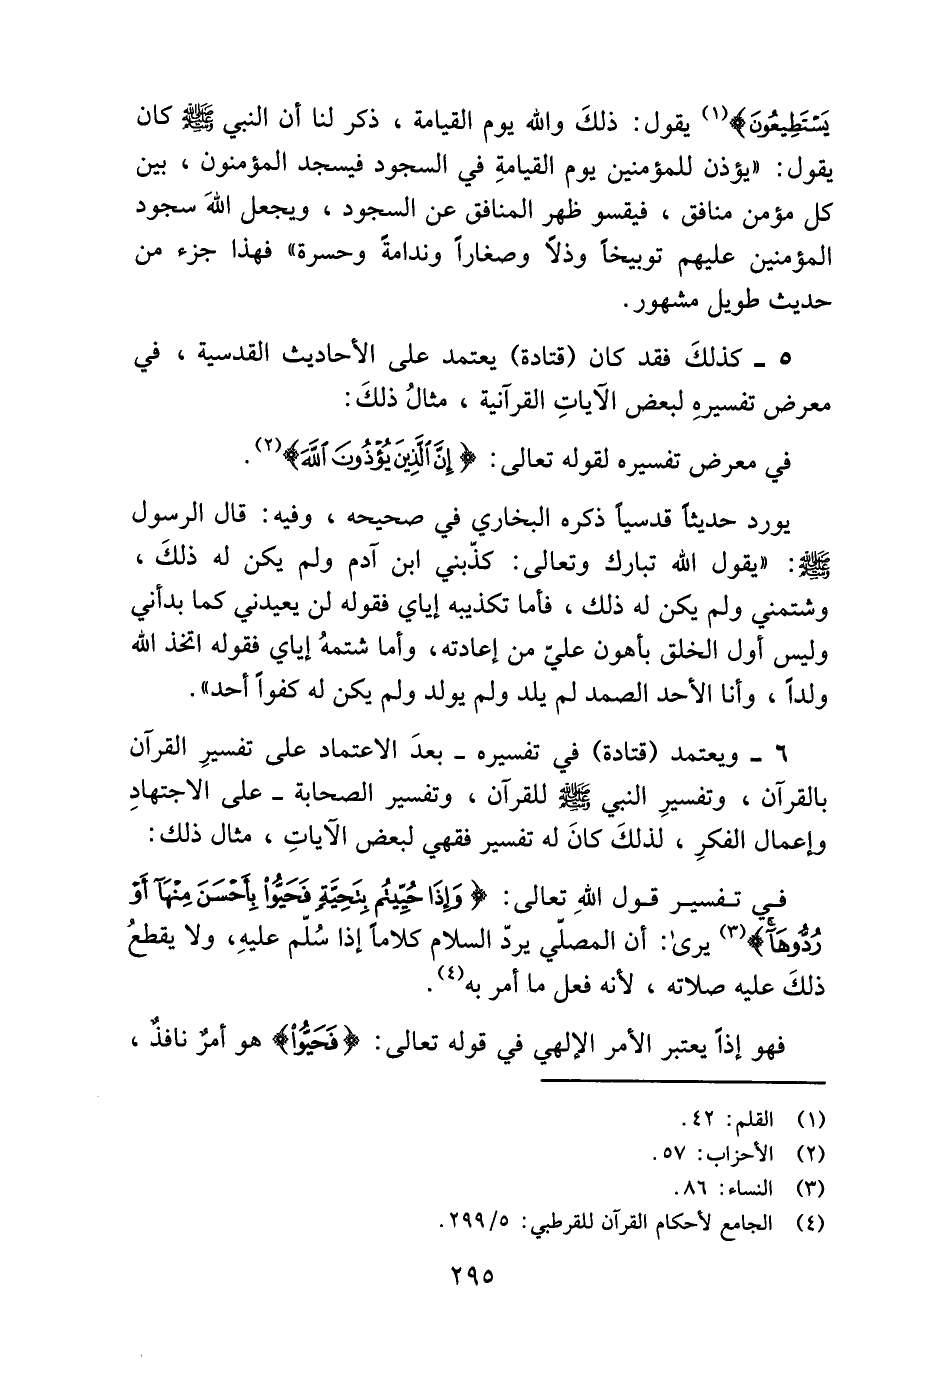 يَسْتَطِيعُونَ﴾(١) يقول: ذلكَ والله يوم القيامة ، ذكر لنا أن النبي ﷺ كان
يقول: «يؤذن للمؤمنين يوم القيامةِ في السجود فيسجد المؤمنون ، بين
كل مؤمن منافق ، فيقسو ظهر المنافق عن السجود ، ويجعل اللهَ سجود
المؤمنين عليهم توبيخاً وذلاً وصغاراً وندامةً وحسرة» فهذا جزء من
حديث طويل مشهور.
٥ ـ كذلكَ فقد كان (قتادة) يعتمد على الأحاديث القدسية ، في
معرض تفسيرهِ لبعض الآياتِ القرآنية ، مثالُ ذلكَ:
في معرض تفسيره لقوله تعالى: ﴿إِنَّ ٱلَّذِينَ يُؤْذُونَ ٱللَّهَ﴾(٢).
يورد حديثاً قدسياً ذكره البخاري في صحيحه ، وفيه: قال الرسول
ﷺ: «يقول الله تبارك وتعالى: كذّبني ابن آدم ولم يكن له ذلكَ ،
وشتمني ولم يكن له ذلك ، فأما تكذيبه إياي فقوله لن يعيدني كما بدأني
وليس أول الخلق بأهون عليّ من إعادته، وأما شتمهُ إياي فقوله اتخذ الله
ولداً ، وأنا الأحد الصمد لم يلد ولم يولد ولم يكن له كفواً أحد».
٦ ـ ويعتمد (قتادة) في تفسيره ـ بعدَ الاعتماد على تفسيرِ القرآن
بالقرآن ، وتفسيرِ النبي ﷺ للقرآن ، وتفسير الصحابة ـ على الاجتهادِ
وإعمال الفكرِ ، لذلكَ كانَ له تفسير فقهي لبعض الآياتِ ، مثال ذلك:
في تفسير قول اللهِ تعالى: ﴿وَإِذَا حُيِّيتُم بِتَحِيَّةٍ فَحَيُّوا۟ بِأَحْسَنَ مِنْهَآ أَوْ
رُدُّوهَآۗ﴾(٣) يرىٰ: أن المصلّي يردّ السلام كلاماً إذا سُلّم عليهِ، ولا يقطعُ
ذلكَ عليه صلاته ، لأنه فعل ما أمر به(٤).
فهو إذاً يعتبر الأمر الإلهي في قوله تعالى: ﴿فَحَيُّوا۟﴾ هو أمرٌ نافذٌ ،
(١) القلم: ٤٢.
(٢) الأحزاب: ٥٧.
(٣) النساء: ٨٦.
(٤) الجامع لأحكام القرآن للقرطبي: ٥/ ٢٩٩.
٢٩٥